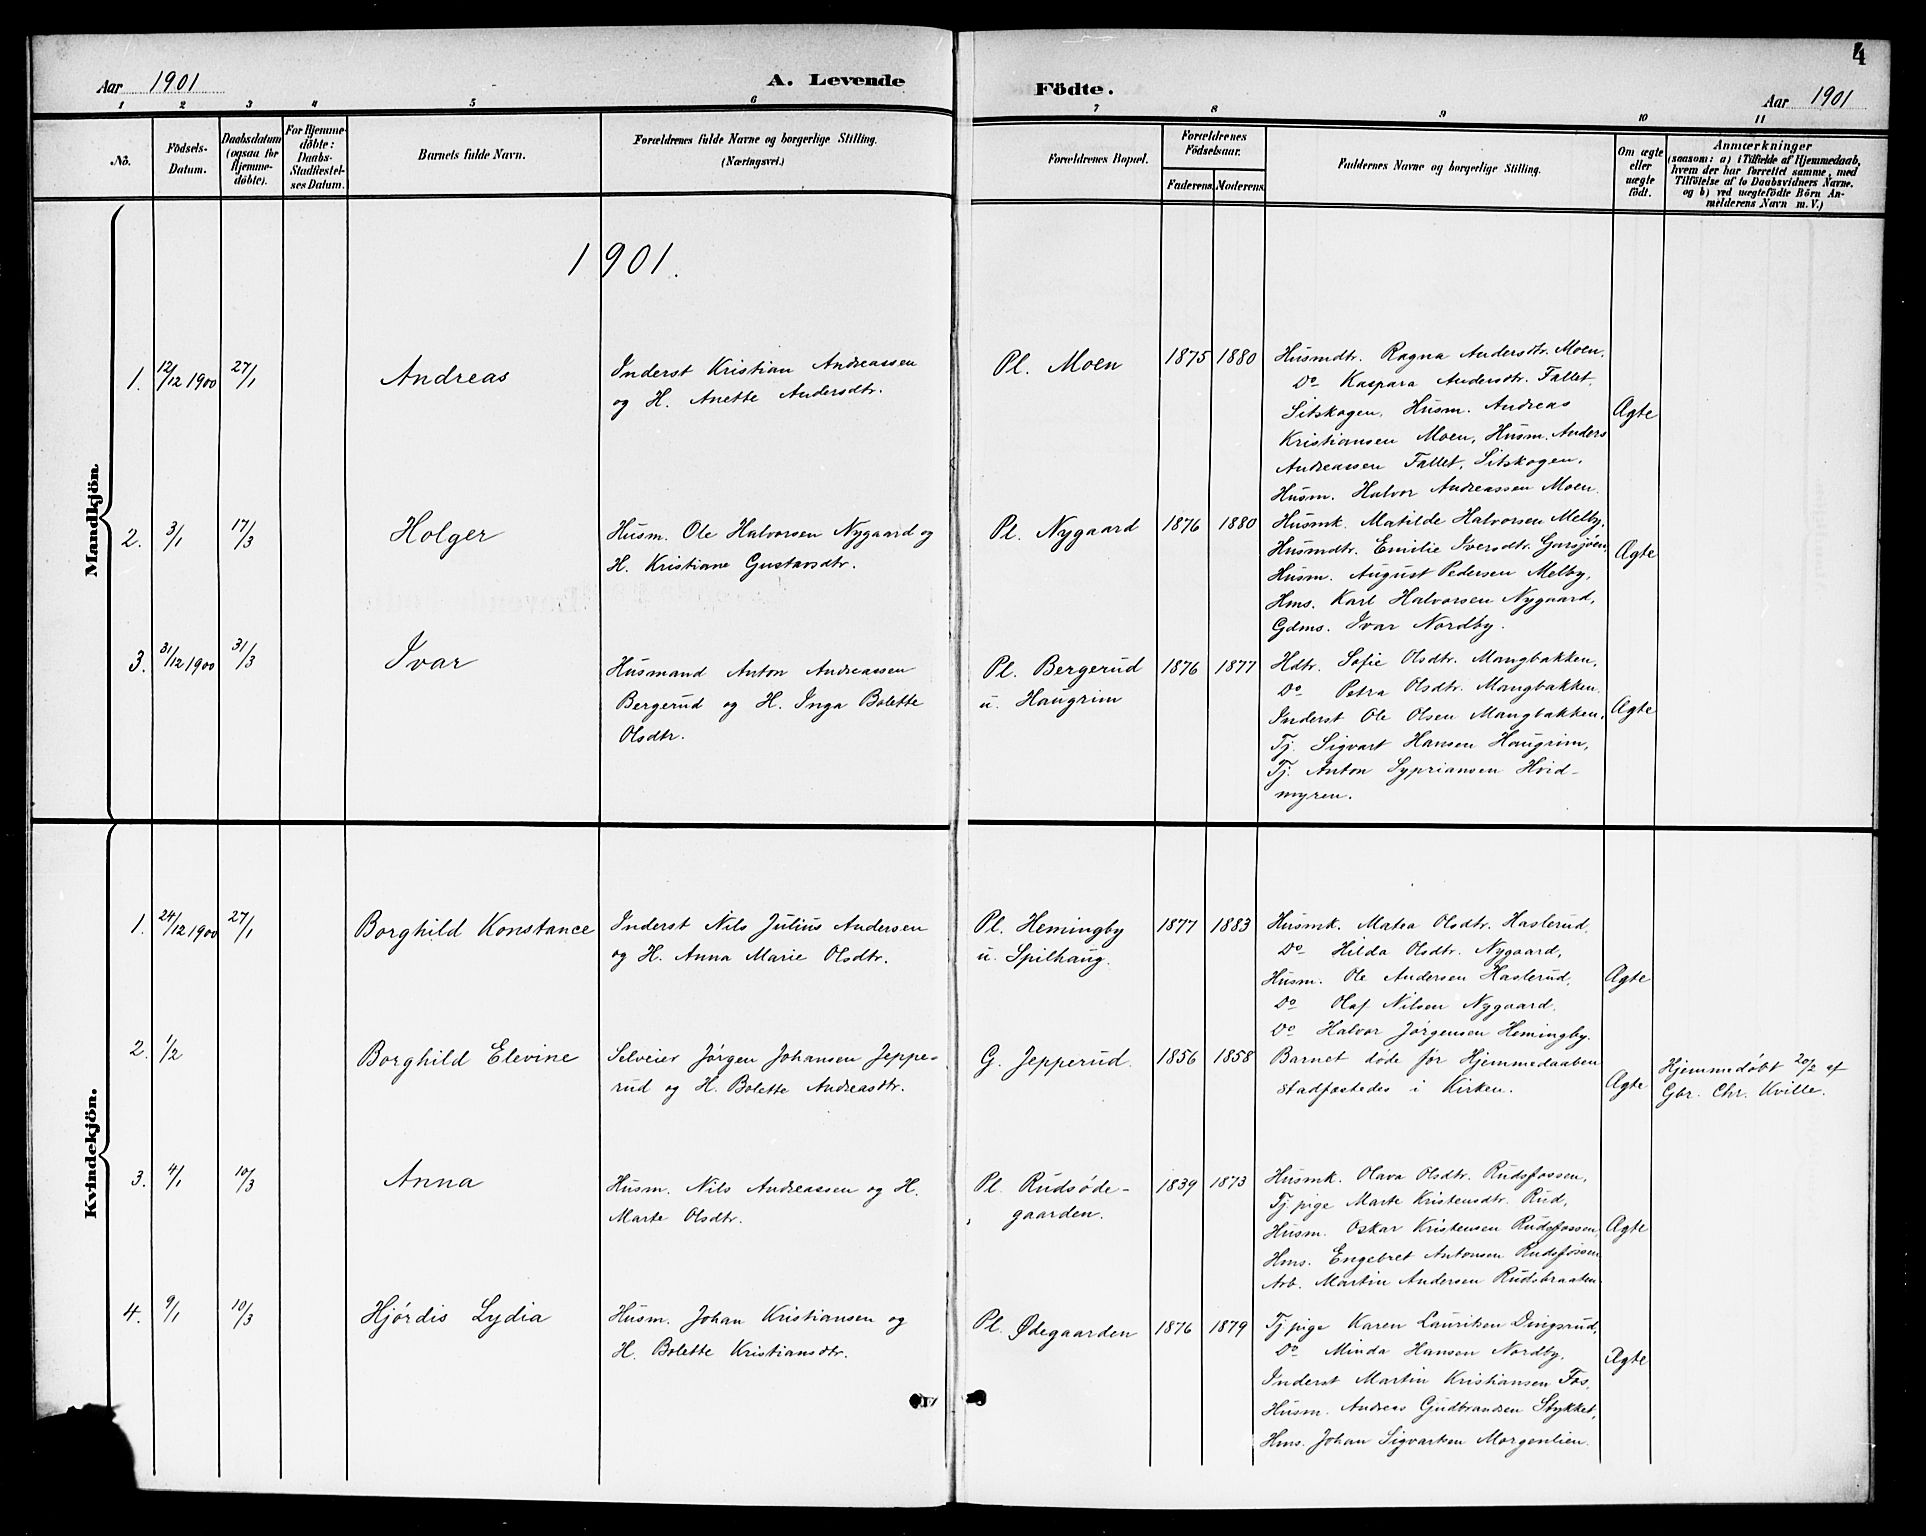 4
Aar 1901
A. Levende
Födte.
Aar 1901
1 2 3 4 5 6 7 8 9 10 11
No.
Födsels-
Datum.
Daabsdatum
(ogsaa for
Hjemme-
döbte).
For Hjemme-
döbte:
Daabs-
Stadfæstel-
ses Datum.
Barnets fulde Navn.
Forældrenes fulde Navne og borgerlige Stilling.
(Næringsvei.)
Forældrenes Bopæl.
Forældrenes
Födselsaar.
Faderens. Moderens.
Faddernes Navne og borgerlige Stilling.
Om ægte
eller
uægte
födt.
Anmærkninger
(saasom: a) i Tilfælde af Hjemmedaab,
hvem der har forrettet samme, med
Tilföielse af to Daabsvidners Navne.
og b) ved uægtefödte Börn An-
melderens Navn m. V.)
1901.
Mandkjön
1. 12/12 1900 27/1 Andreas
Inderst Kristian Andreassen
og H. Anette Andersdtr.
Pl. Moen 1875 1880
Husmdtr. Ragna Andersdtr. Moen,
Do Kaspara Andersdtr. Fallet,
Sitskogen, Husm. Andreas
Kristiansen Moen, Husm. Anders
Andreassen Fallet, Sitskogen,
Husm. Halvor Andreassen Moen.
Ægte
2. 3/1 17/3 Holger
Husm. Ole Halvorsen Nygaard og
H. Kristiane Gustavsdtr.
Pl. Nygaard 1876 1880
Husmk. Matilde Halvorsen Melby,
Husmdtr. Emilie Iversdtr. Garsjøen,
Husm. August Pedersen Melby,
Hms. Karl Halvorsen Nygaard,
Gdms. Ivar Nordby.
Ægte
3. 31/12 1900 31/3 Ivar
Husmand Anton Andreassen
Bergerud og H. Inga Bolette
Olsdtr.
Pl. Bergerud
u. Haugrim
1876 1877
Hdtr. Sofie Olsdtr. Mangbakken,
Do Petra Olsdtr. Mangbakken.
Inderst Ole Olsen Mangbakken,
Tj. Sigvart Hansen Haugrim,
Tj. Anton Sypriansen Hvid-
myren.
Ægte
Kvindekjön.
1. 24/12 1900 27/1 Borghild Konstance
Inderst Nils Julius Andersen
og H. Anna Marie Olsdtr.
Pl. Hemingby
u. Spilhaug.
1877 1883
Husmk. Matea Olsdtr. Haslerud,
Do Hilda Olsdtr. Nygaard,
Husm. Ole Andersen Haslerud,
Do Olaf Nilsen Nygaard.
Do Halvor Jørgensen Hemingby.
Ægte
2. 1/2 Borghild Elevine
Selveier Jørgen Johansen Jeppe-
rud og H. Bolette Andreasdtr.
G. Jepperud. 1856 1858
Barnet døde før Hjemmedaaben
stadfæstedes i Kirken.
Ægte
Hjemmedøbt 20/2 af
Gbr. Chr. Kville.
3. 4/1 10/3 Anna
Husm. Nils Andreassen og H.
Marte Olsdtr.
Pl. Rudsøde-
gaarden.
1839 1873
Husmk. Olava Olsdtr. Rudsfossen,
Tj. pige Marte Kristensdtr. Rud,
Husm. Oskar Kristensen Rudsfossen,
Hms. Engebret Antonsen Rudsfossen
Arb. Martin Andersen Rudsbraaten
Ægte
4. 9/1 10/3 Hjørdis Lydia
Husm. Johan Kristiansen og
H. Bolette Kristiansdtr.
Pl. Ødegaarden 1876 1879
Tj. pige Karen Lauritsen Dingsrud,
Do Minda Hansen Nordby,
Inderst Martin Kristiansen Fos,
Husm. Andreas Gudbrandsen Stykket,
Hms. Johan Sigvartsen Morgenlien.
Ægte